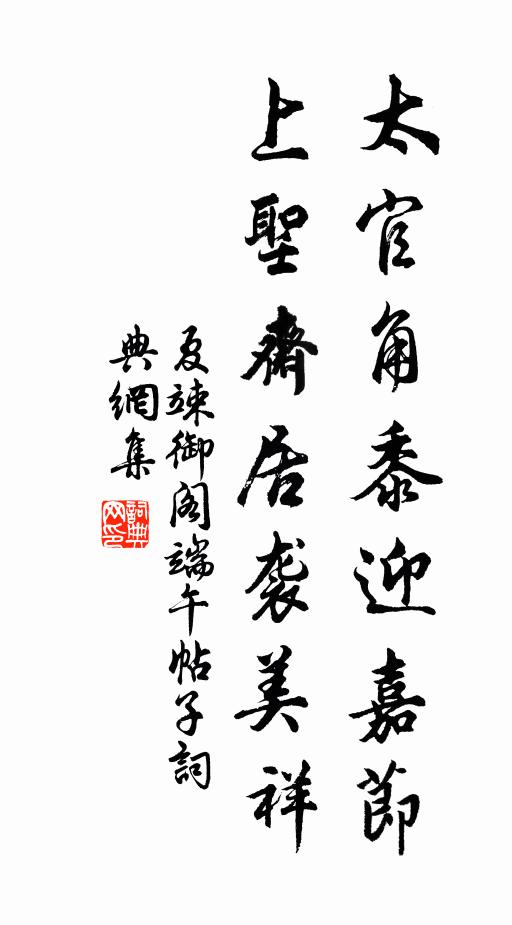 太官角黍迎嘉節
上聖齋居袭美祥
夏竦御阁端午帖子詞
典網集
詞典网印